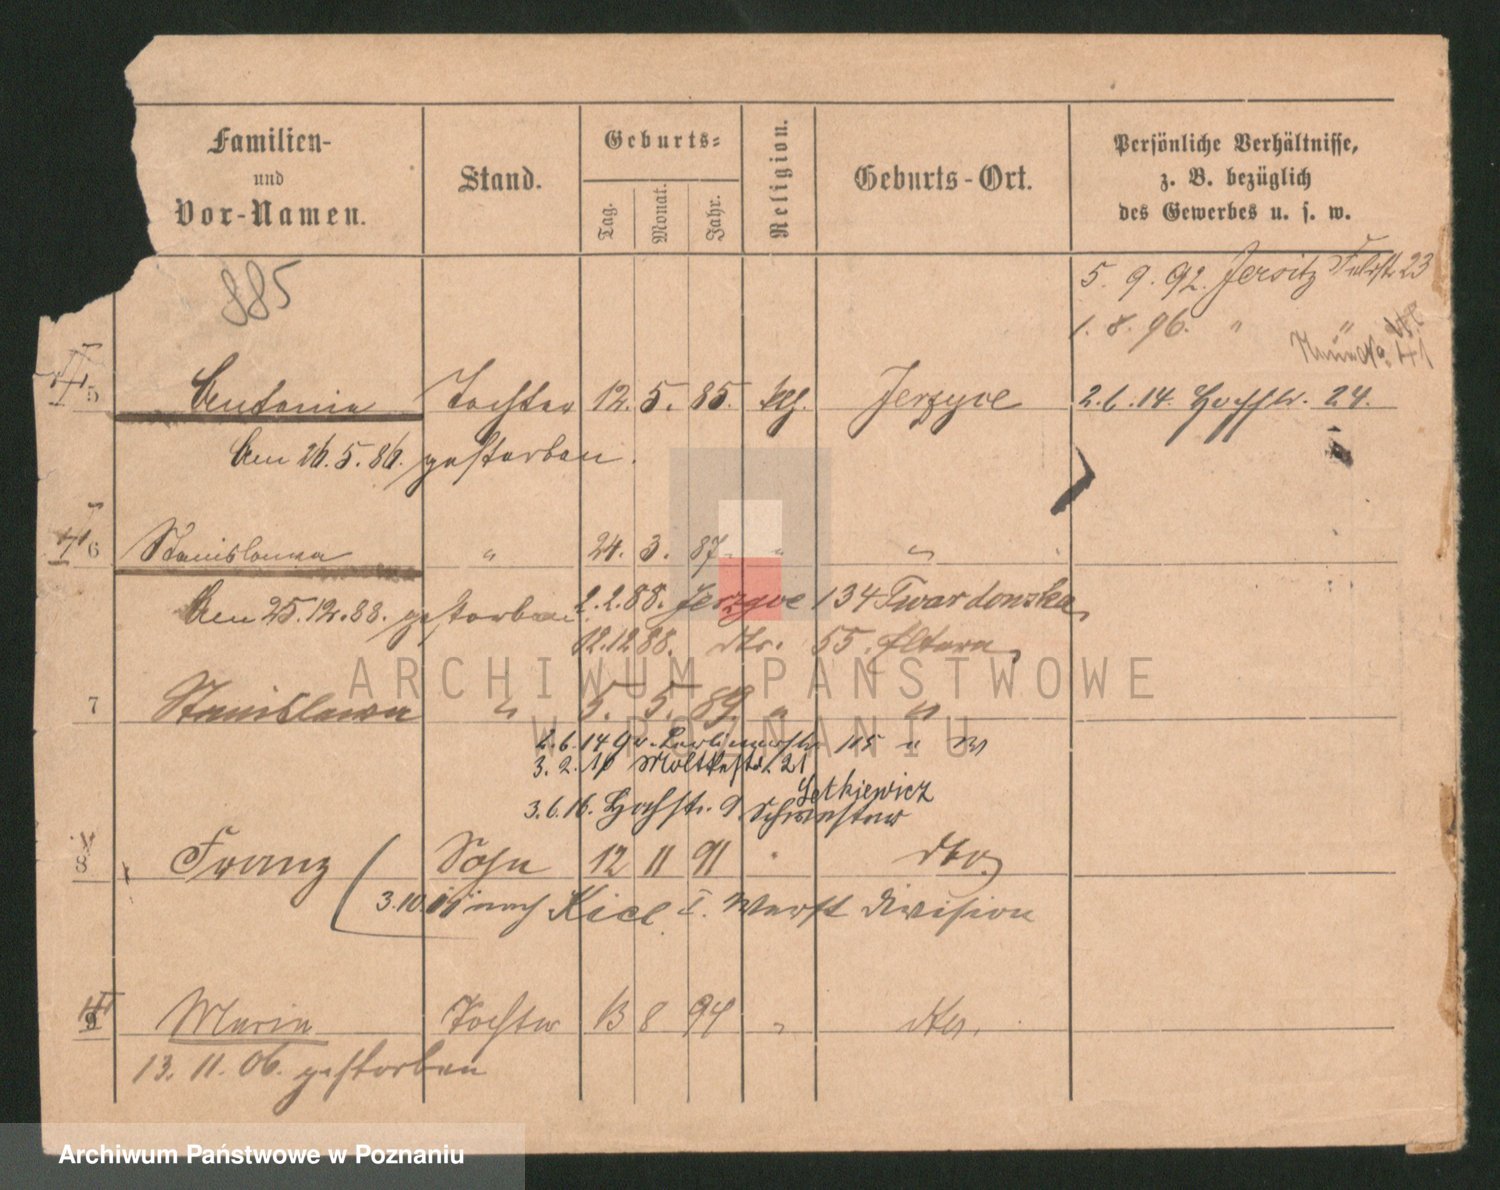 Familien-
und
Vor-Namen.
Stand.
Geburts-
Tag.
Monat.
Jahr.
Religion.
Geburts-Ort.
Persönliche Verhältnisse,
z. B. bezüglich
des Gewerbes u. s. w.
885
5. 9. 92. Jersitz 23
1. 8. 96. " "
41
5 Antonia Tochter 12. 5. 85. kth. Jerzyce 2.6.14. Hochstr. 24.
Am 26.5.86. gestorben.
6 Stanislawa " 24. 3. 87. " "
Am 25.12.88. gestorben. 2.2.88. Jerzyce 134 Twardowska
12.12.88. dto. 55.
7 Stanislawa " 5. 5. 89. " "
2.6.14 Gr. Berlinerstr. 115
3. 2. Moltkestr. 21
Letkiewicz
3.6.16. Hochstr. 9. Schwester
8 Franz Sohn 12 11 91 " dto.
3.10.11 nach Kiel I. Werft Division
9 Maria Tochter 13 8 94 " dto.
13. 11. 06. gestorben
ARCHIWUM PAŃSTWOWE
W POZNANIU
Archiwum Państwowe w Poznaniu